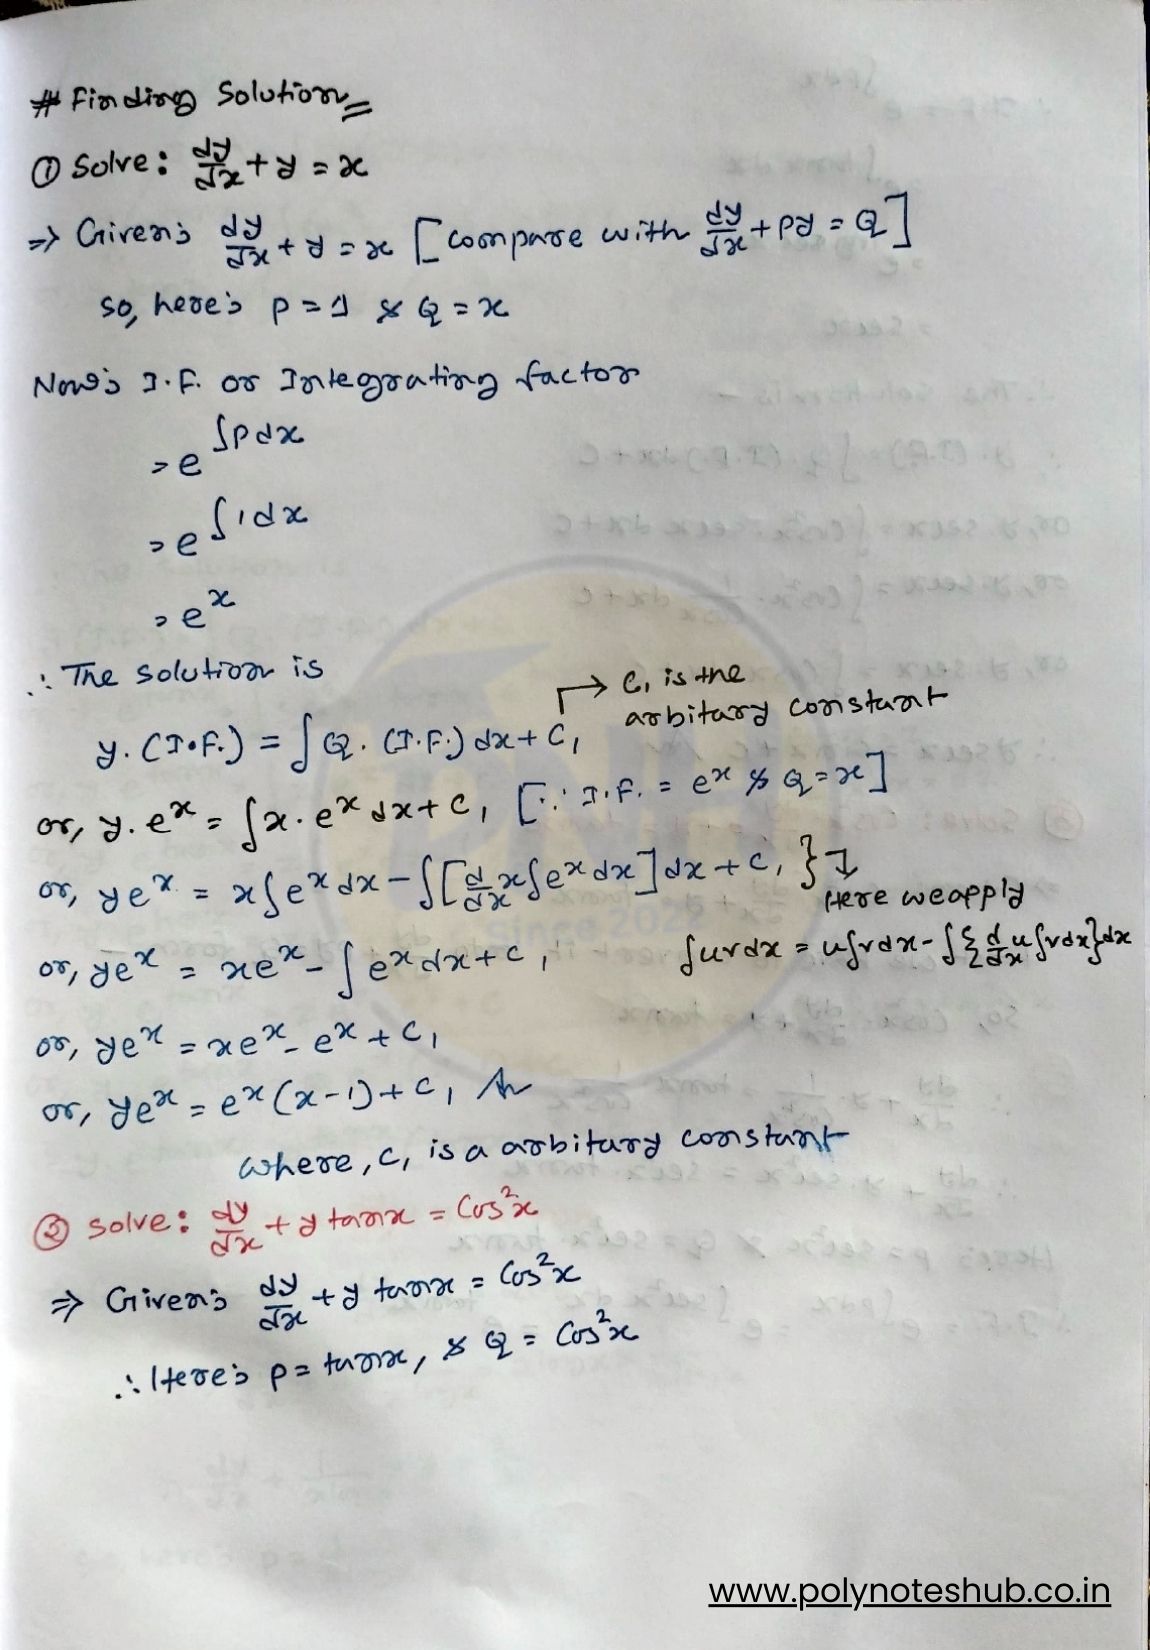 # Finding Solution
① Solve: dy/dx + y = x
⇒ Given; dy/dx + y = x [Compare with dy/dx + Py = Q]
so, here; P = 1 & Q = x
Now; I.F. or Integrating factor
= e^∫Pdx
= e^∫1dx
= e^x
∴ The solution is
y.(I.F.) = ∫Q.(I.F.)dx + C₁ → C₁ is the
arbitary constant
or, y.e^x = ∫x.e^x dx + C₁ [∵ I.F. = e^x & Q = x]
or, ye^x = x∫e^x dx - ∫[d/dx x∫e^x dx]dx + C₁ }
Here we apply
or, ye^x = xe^x - ∫e^x dx + C₁
∫uvdx = u∫vdx - ∫{d/dx u∫vdx}dx
or, ye^x = xe^x - e^x + C₁
or, ye^x = e^x(x-1) + C₁ An
where, C₁ is a arbitary constant
② Solve: dy/dx + y tanx = Cos²x
⇒ Given; dy/dx + y tanx = Cos²x
∴ Here; P = tanx, & Q = Cos²x
PNH
Since 2022
www.polynoteshub.co.in